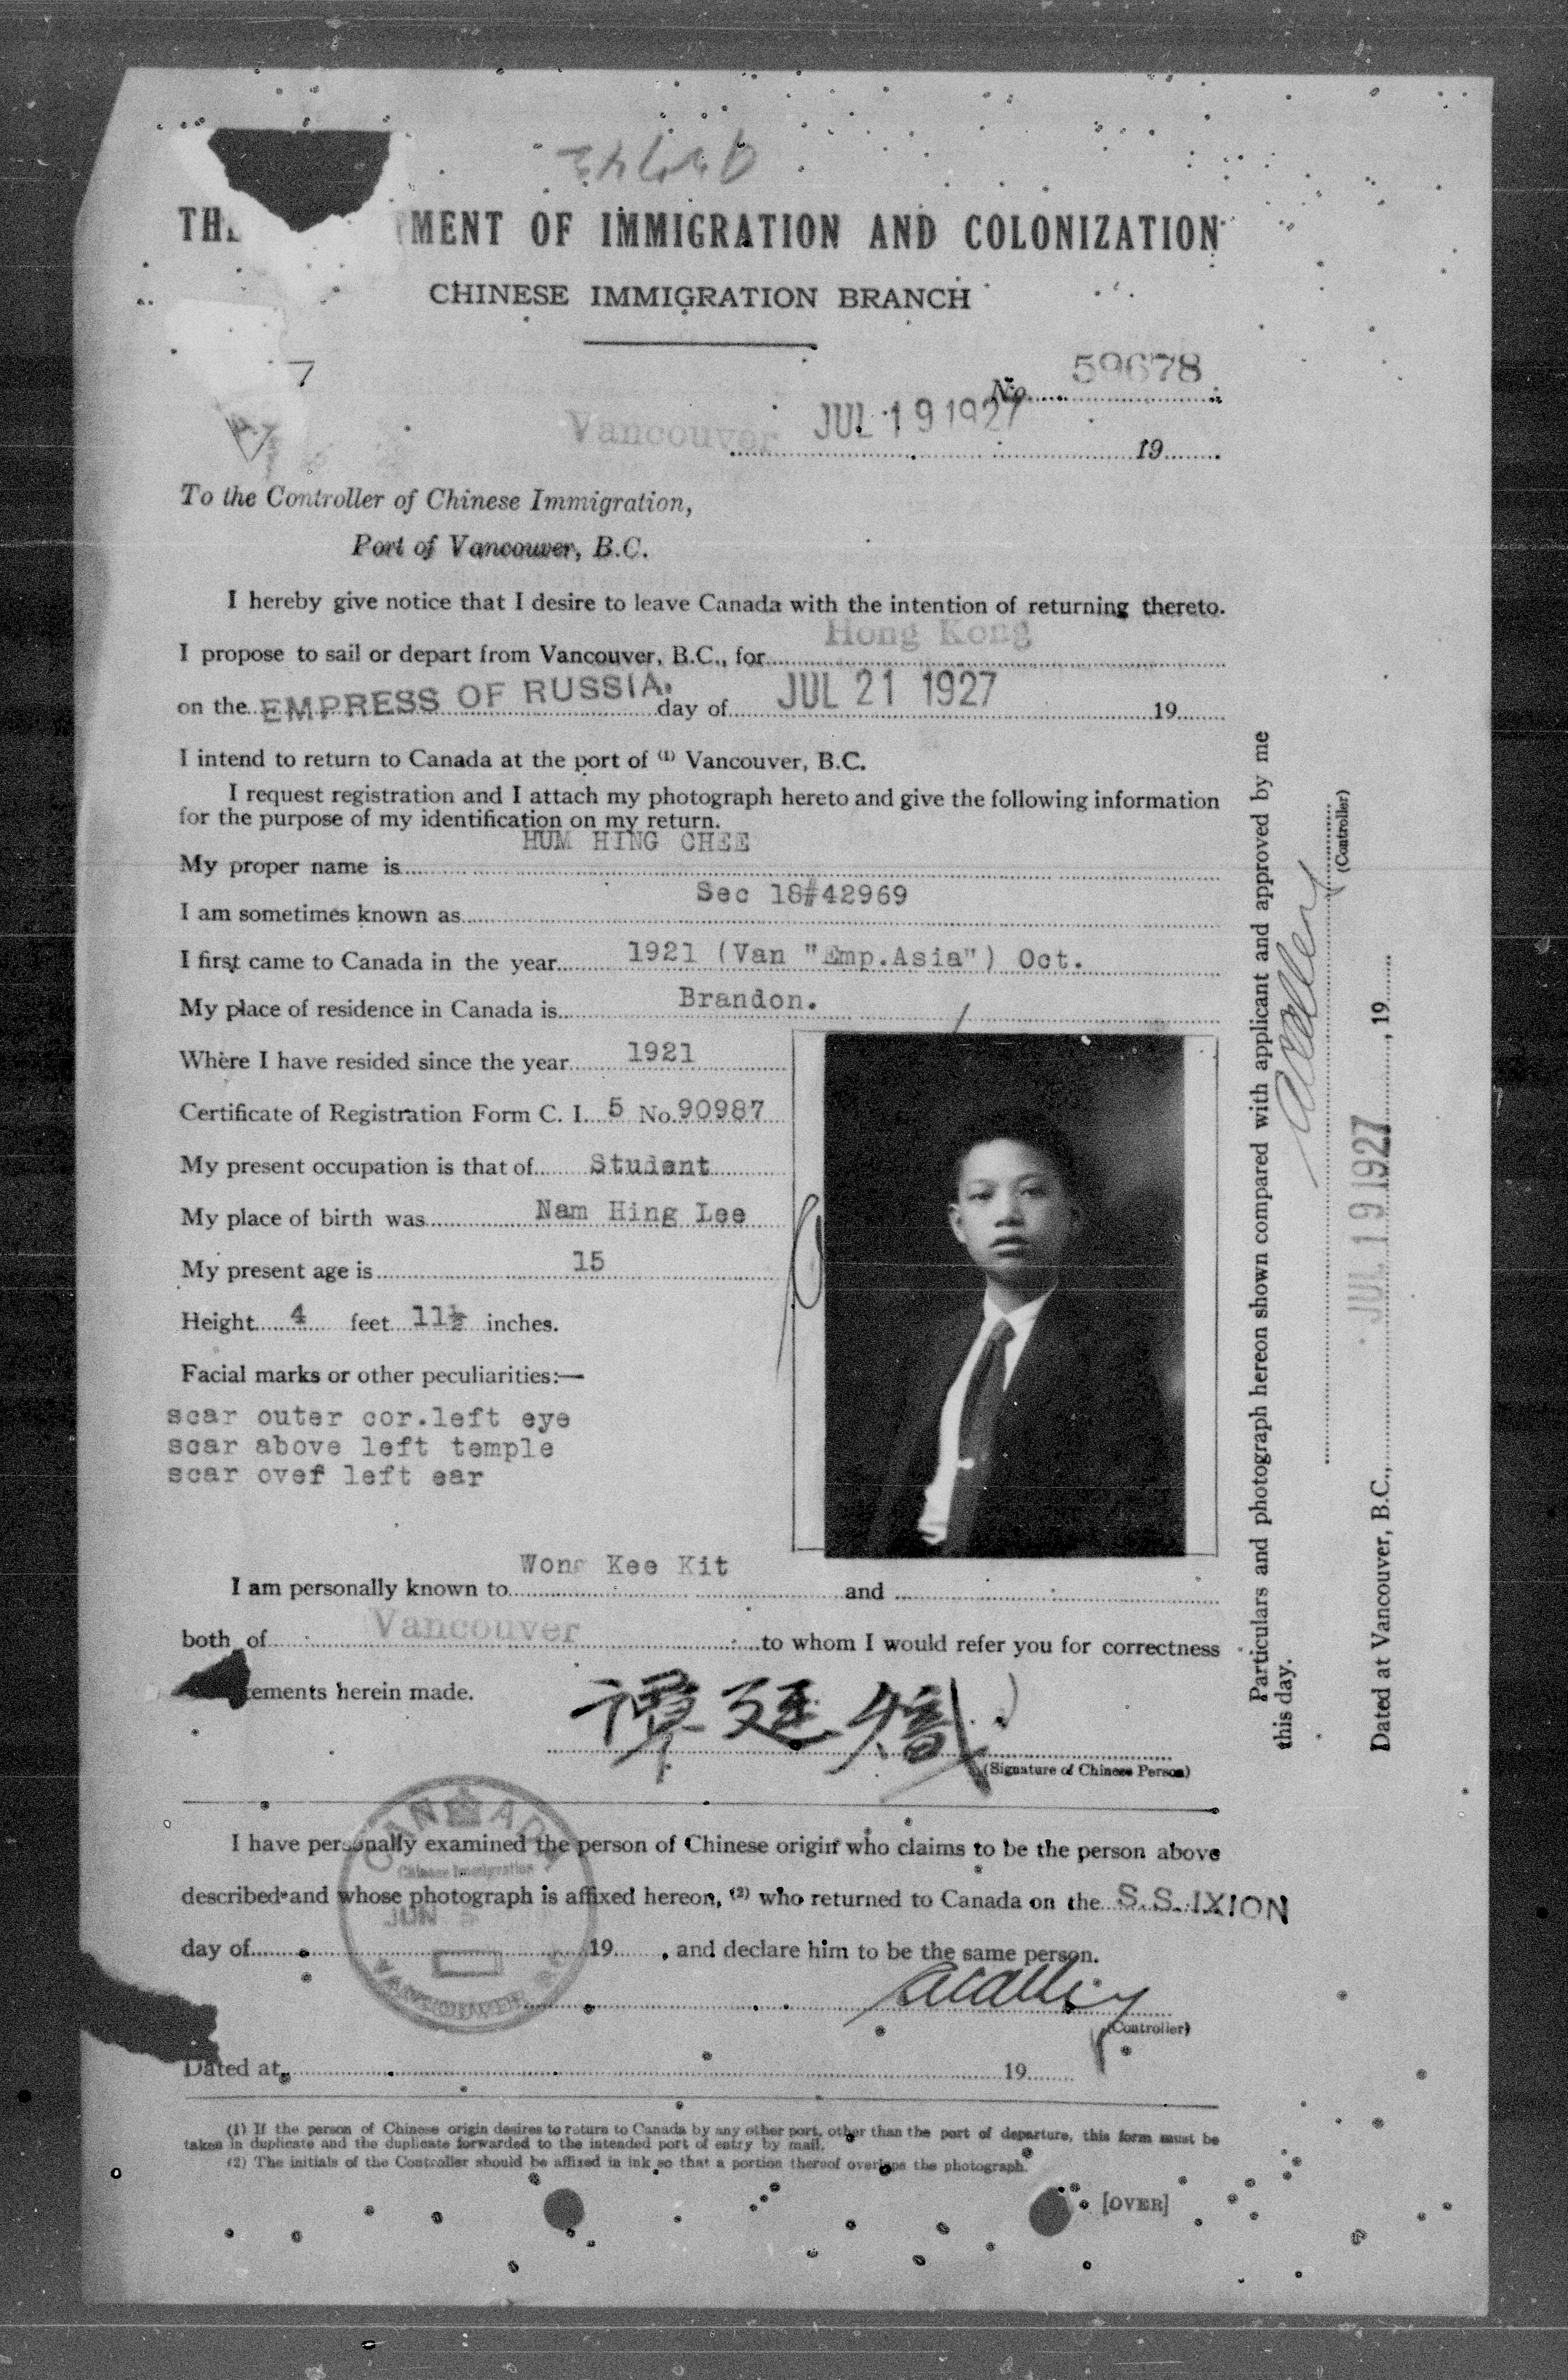 TH MENT OF IMMIGRATION AND COLONIZATION
CHINESE IMMIGRATION BRANCH
7
No. 59678
Vancouver JUL 19 1927 19
To the Controller of Chinese Immigration,
Port of Vancouver, B.C.
I hereby give notice that I desire to leave Canada with the intention of returning thereto.
I propose to sail or depart from Vancouver, B.C., for Hong Kong
on the EMPRESS OF RUSSIA. day of JUL 21 1927 19
I intend to return to Canada at the port of (1) Vancouver, B.C.
I request registration and I attach my photograph hereto and give the following information
for the purpose of my identification on my return.
My proper name is HUM HING CHEE
I am sometimes known as Sec 18#42969
I first came to Canada in the year 1921 (Van "Emp.Asia") Oct.
My place of residence in Canada is Brandon.
Where I have resided since the year 1921
Certificate of Registration Form C. I. 5 No. 90987
My present occupation is that of Student
My place of birth was Nam Hing Lee
My present age is 15
Height 4 feet 11½ inches.
Facial marks or other peculiarities:—
scar outer cor.left eye
scar above left temple
scar ovef left ear
I am personally known to Wong Kee Kit and
both of Vancouver to whom I would refer you for correctness
tements herein made.
譚廷
(Signature of Chinese Person)
I have personally examined the person of Chinese origin who claims to be the person above
described and whose photograph is affixed hereon, (2) who returned to Canada on the S.S. IXION
day of 19 , and declare him to be the same person.
(Controller)
Dated at 19
CANADA
Chinese Immigration
JUN
VANCOUVER B.C.
(1) If the person of Chinese origin desires to return to Canada by any other port, other than the port of departure, this form must be
taken in duplicate and the duplicate forwarded to the intended port of entry by mail.
(2) The initials of the Controller should be affixed in ink so that a portion thereof overlaps the photograph.
[OVER]
Particulars and photograph hereon shown compared with applicant and approved by me
this day.
(Controller)
Dated at Vancouver, B.C., JUL 19 1927, 19